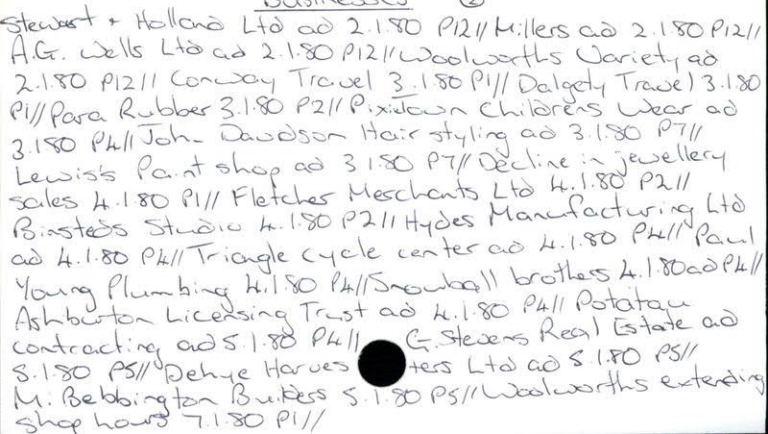 Businesses (2)
Stewart + Holland Ltd ad 2.1.80 P12// Millers ad 2.1.80 P12//
A.G. Wells Ltd ad 2.1.80 P12// Woolworths Variety ad
2.1.80 P12// Conway Travel 3.1.80 P1// Dalgety Travel 3.1.80
P1// Para Rubber 3.1.80 P2// Pixietown Childrens Wear ad
3.1.80 P4// John Davidson Hair styling ad 3.1.80 P7//
Lewis's Paint shop ad 3.1.80 P7// Decline in jewellery
sales 4.1.80 P1// Fletcher Merchants Ltd 4.1.80 P2//
Binsteds Studio 4.1.80 P2// Hydes Manufacturing Ltd
ad 4.1.80 P4// Triangle cycle center ad 4.1.80 P4// Paul
Young Plumbing 4.1.80 P4// Snowball brothers 4.1.80 ad P4//
Ashburton Licensing Trust ad 4.1.80 P4// Potatau
contracting ad 5.1.80 P4// G. Stevens Real Estate ad
5.1.80 P5// Harves ters Ltd ad 5.1.80 P5//
M. Bebbington Builders 5.1.80 P5// Woolworths extending
shop hours 7.1.80 P1//